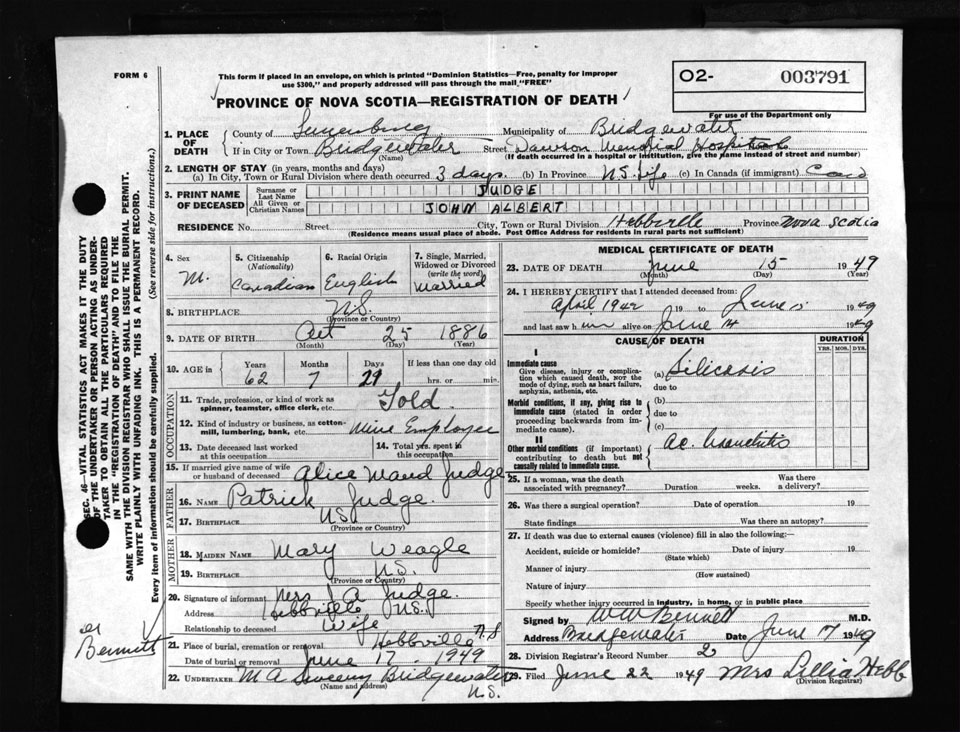 FORM 6
This form if placed in an envelope, on which is printed "Dominion Statistics—Free, penalty for improper
use $300," and properly addressed will pass through the mail "FREE"
O2- 003791
For use of the Department only
PROVINCE OF NOVA SCOTIA—REGISTRATION OF DEATH
1. PLACE OF DEATH
County of Lunenburg Municipality of Bridgewater
If in City or Town Bridgewater Street Dawson Memorial Hospital
(Name) (If death occurred in a hospital or institution, give the name instead of street and number)
2. LENGTH OF STAY (in years, months and days)
(a) In City, Town or Rural Division where death occurred 3 days. (b) In Province N.S. life (c) In Canada (if immigrant)
3. PRINT NAME OF DECEASED
Surname or Last Name JUDGE
All Given or Christian Names JOHN ALBERT
RESIDENCE No. Street City, Town or Rural Division Hebbville Province Nova Scotia
(Residence means usual place of abode. Post Office Address for residents in rural parts not sufficient)
4. Sex M.
5. Citizenship (Nationality) Canadian
6. Racial Origin English
7. Single, Married, Widowed or Divorced (write the word) Married
8. BIRTHPLACE N.S.
(Province or Country)
9. DATE OF BIRTH Oct 25 1886
(Month) (Day) (Year)
10. AGE in Years Months Days If less than one day old
62 7 29 hrs. or min.
OCCUPATION
11. Trade, profession, or kind of work as
spinner, teamster, office clerk, etc. Gold
12. Kind of industry or business, as cotton-
mill, lumbering, bank, etc. Mine Employee
13. Date deceased last worked at this occupation
14. Total yrs. spent in this occupation
15. If married give name of wife
or husband of deceased Alice Maud Judge
FATHER
16. NAME Patrick Judge.
17. BIRTHPLACE N.S.
(Province or Country)
MOTHER
18. MAIDEN NAME Mary Weagle
19. BIRTHPLACE N.S.
(Province or Country)
20. Signature of informant Mrs J A Judge.
Address Hebbville N.S.
Relationship to deceased Wife
21. Place of burial, cremation or removal Hebbville N.S
Date of burial or removal June 17 1949
22. UNDERTAKER M A Sweeny Bridgewater
(Name and address) N.S.
MEDICAL CERTIFICATE OF DEATH
23. DATE OF DEATH June 15 1949
(Month) (Day) (Year)
24. I HEREBY CERTIFY that I attended deceased from:
April 1942 19 to June 15 1949
and last saw him alive on June 14 1949
CAUSE OF DEATH
DURATION
YRS. MOS. DYS.
I
Immediate cause
Give disease, injury or complica-
tion which caused death, not the
mode of dying, such as heart failure,
asphyxia, asthenia, etc.
(a) Silicosis
due to
Morbid conditions, if any, giving rise to
immediate cause (stated in order
proceeding backwards from im-
mediate cause).
(b)
due to
(c)
II
Other morbid conditions (if important)
contributing to death but not
causally related to immediate cause.
ac. bronchitis
25. If a woman, was the death
associated with pregnancy? Duration weeks. Was there a delivery?
26. Was there a surgical operation? Date of operation 19
State findings Was there an autopsy?
27. If death was due to external causes (violence) fill in also the following:—
Accident, suicide or homicide? Date of injury 19
(State which)
Manner of injury
(How sustained)
Nature of injury
Specify whether injury occurred in industry, in home, or in public place
Signed by WW Bennett M.D.
Address Bridgewater Date June 17 1949
28. Division Registrar's Record Number 2
29. Filed June 22 1949 Mrs Lillia Hebb
(Division Registrar)
SEC. 46—VITAL STATISTICS ACT MAKES IT THE DUTY
OF THE UNDERTAKER OR PERSON ACTING AS UNDER-
TAKER TO OBTAIN ALL THE PARTICULARS REQUIRED
IN THE "REGISTRATION OF DEATH" AND TO FILE THE
SAME WITH THE DIVISION REGISTRAR WHO SHALL ISSUE THE BURIAL PERMIT.
WRITE PLAINLY WITH UNFADING INK. THIS IS A PERMANENT RECORD.
Every item of information should be carefully supplied. (See reverse side for instructions.)
Bennett